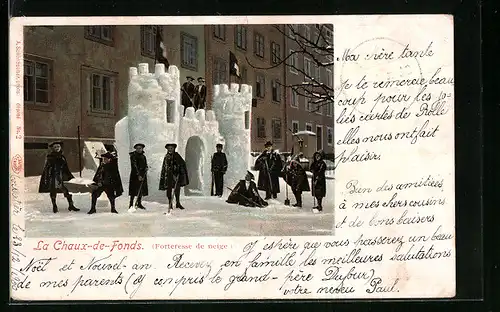 Ma chère tante
Je te remercie beau
coup pour les jo-
lies cartes de Rolle
elles nous ont fait
plaisir.
Bien des amitiés
à mes chers cousins
et de bons baisers
La Chaux-de-Fonds. (Forteresse de neige)
J'espère que vous passerez un beau
Noël et Nouvel-an. Recevez en famille les meilleures salutations
de mes parents (y compris le grand-père Dufour)
votre neveu Paul.